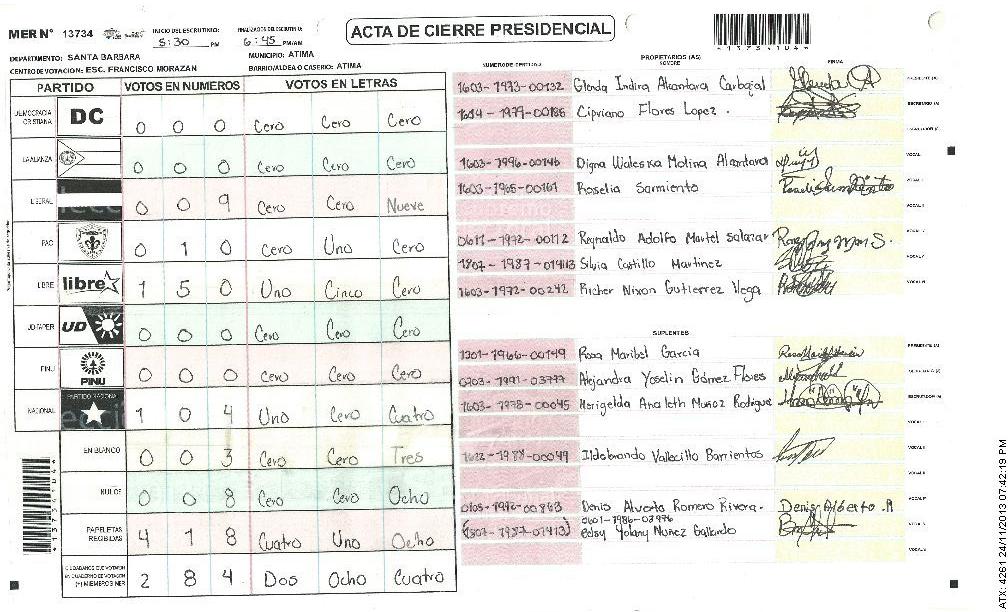 MER N° 13734
INICIO DEL ESCRUTINIO: 5:30 PM
FINALIZACION DEL ESCRUTINIO: 6:45 PM/AM
ACTA DE CIERRE PRESIDENCIAL
13734104
DEPARTAMENTO: SANTA BARBARA
MUNICIPIO: ATIMA
CENTRO DE VOTACION: ESC. FRANCISCO MORAZAN
BARRIO/ALDEA O CASERIO: ATIMA
PARTIDO VOTOS EN NUMEROS VOTOS EN LETRAS
DEMOCRACIA CRISTIANA DC 0 0 0 Cero Cero Cero
LA ALIANZA 0 0 0 Cero Cero Cero
LIBERAL 0 0 9 Cero Cero Nueve
PAC 0 1 0 Cero Uno Cero
LIBRE libre 1 5 0 Uno Cinco Cero
UD FAPER UD 0 0 0 Cero Cero Cero
PINU PINU 0 0 0 Cero Cero Cero
NACIONAL PARTIDO NACIONAL 1 0 4 Uno Cero Cuatro
EN BLANCO 0 0 3 Cero Cero Tres
NULOS 0 0 8 Cero Cero Ocho
PAPELETAS RECIBIDAS 4 1 8 Cuatro Uno Ocho
CIUDADANOS QUE VOTARON EN CUADERNO DE VOTACION (+) MIEMBROS MER 2 8 4 Dos Ocho Cuatro
PROPIETARIOS (AS)
NOMBRE FIRMA
1603-1973-00132 Glenda Indira Alcantara Carbajal PRESIDENTE (A)
1614-1979-00186 Cipriano Flores Lopez. SECRETARIO (A)
ESCRUTADOR (A)
1603-1996-00146 Digna Waleska Molina Alcantara VOCAL I
1603-1965-00161 Roselia Sarmiento
0611-1972-00112 Reynaldo Adolfo Martel Salazar
1807-1987-01413 Silvia Castillo Martinez
1603-1972-00242 Richer Nixon Gutierrez Vega
SUPLENTES
1301-1966-00149 Rosa Maribel Garcia PRESIDENTE (A)
0703-1991-03777 Alejandra Yoselin Gómez Flores SECRETARIO (A)
1603-1978-00045 Herigelda Analeth Muñoz Rodrigue ESCRUTADOR (A)
1622-1988-00049 Ildebrando Vallecillo Barrientos
Denis Alverto Romero Rivera. Denis Alberto .R
0601-1986-03976
(1807-1987-01413) Betsy Yolany Nuñez Gallardo
13734104
ATX: 4261 24/11/2013 07:42:19 PM